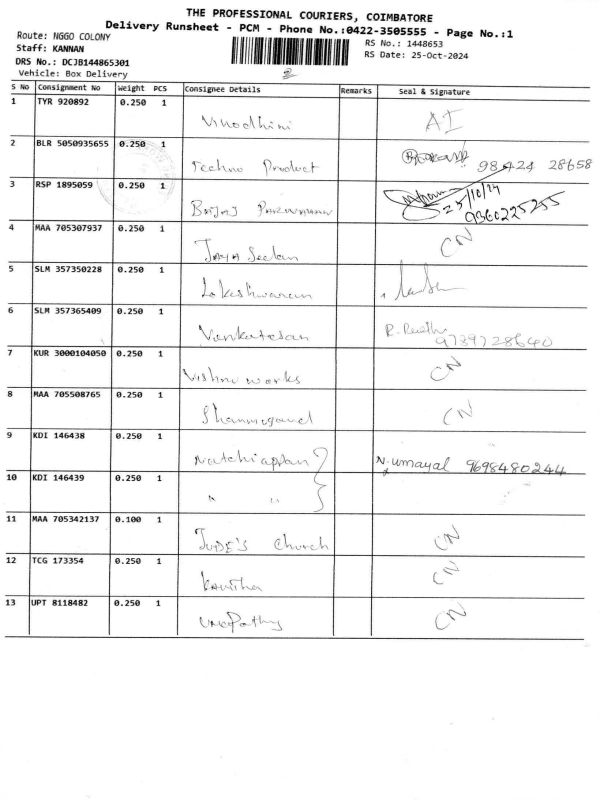 THE PROFESSIONAL COURIERS, COIMBATORE
Delivery Runsheet - PCM - Phone No.:0422-3505555 - Page No.:1
Route: NGGO COLONY
RS No.: 1448653
Staff: KANNAN
RS Date: 25-Oct-2024
DRS No.: DCJB144865301
Vehicle: Box Delivery
2
S No Consignment No Weight PCS Consignee Details Remarks Seal & Signature
1 TYR 920892 0.250 1
Vinodhini AI
2 BLR 5050935655 0.250 1
Techno Product 98424 28658
3 RSP 1895059 0.250 1
BAJAJ 25/10/24
9360225255
4 MAA 705307937 0.250 1
JAYA Seelan CN
5 SLM 357350228 0.250 1
Lokeshwaran
6 SLM 357365409 0.250 1
Venkatesan R.
9739728640
7 KUR 3000104050 0.250 1
Vishnu works CN
8 MAA 705508765 0.250 1
CN
9 KDI 146438 0.250 1
Natchiappan N. Umayal 9698480244
10 KDI 146439 0.250 1
" "
11 MAA 705342137 0.100 1
JUDE'S Church CN
12 TCG 173354 0.250 1
Kavitha CN
13 UPT 8118482 0.250 1
Umapathy CN